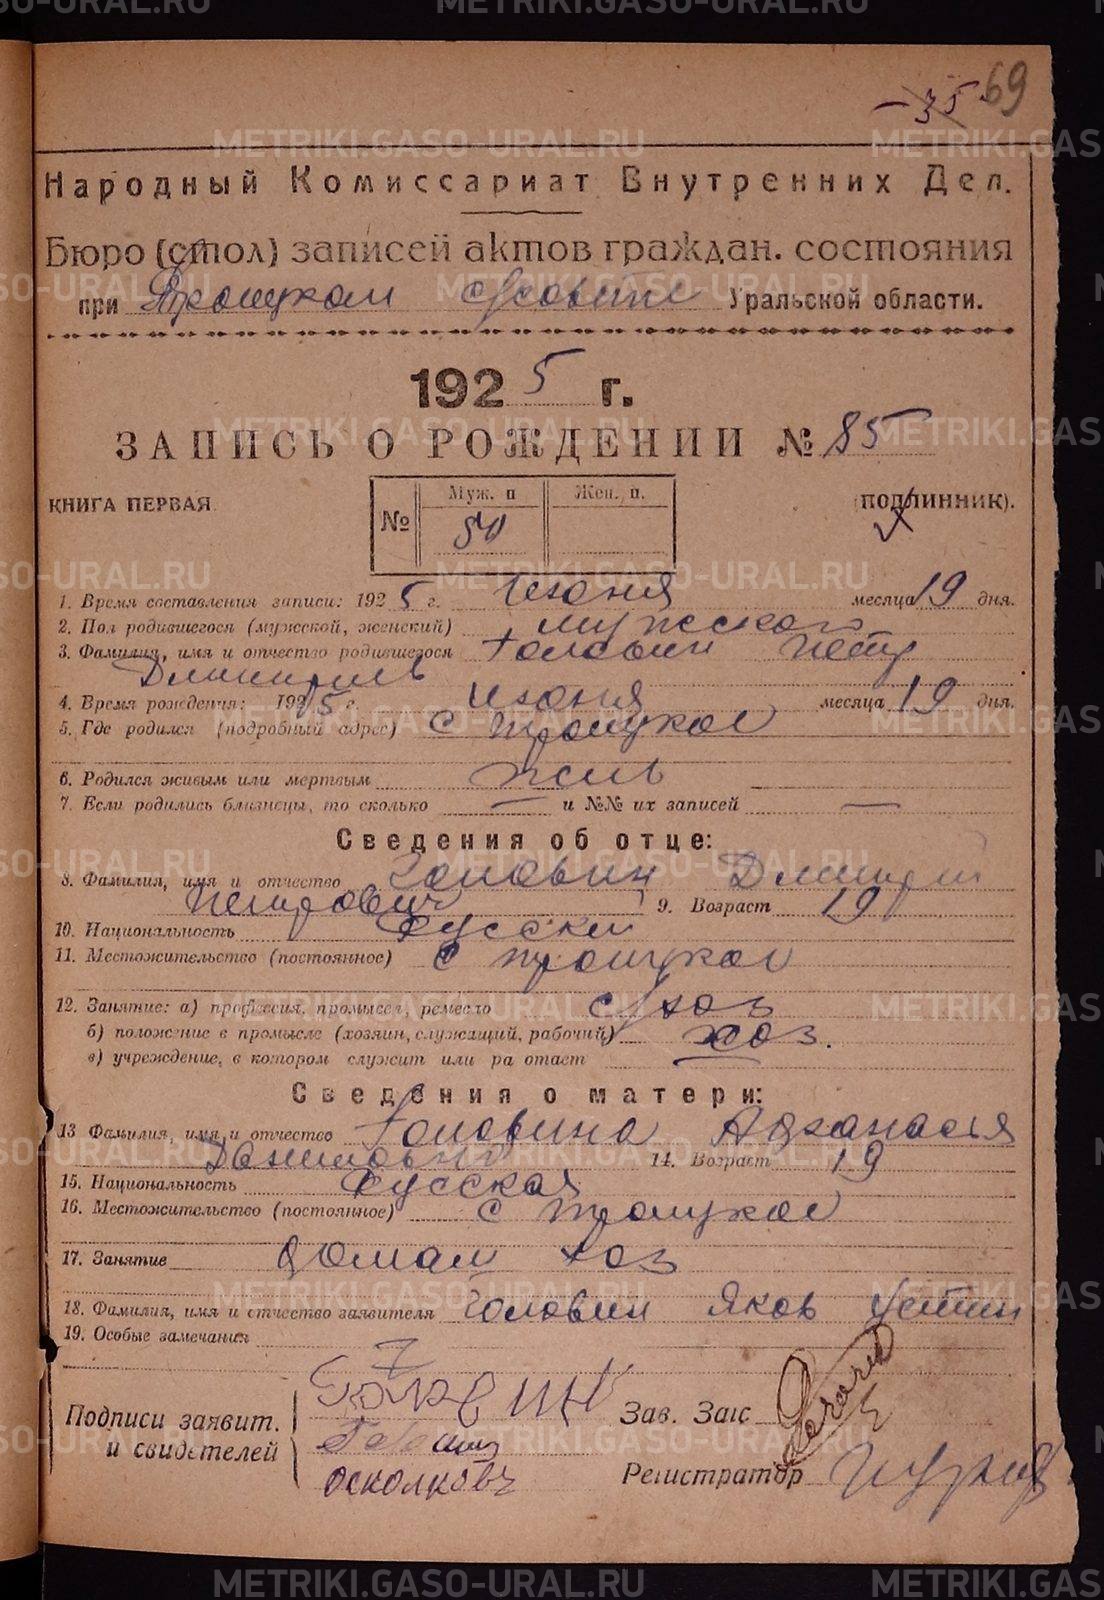 -35- 69
Народный Комиссариат Внутренних Дел.
Бюро (стол) записей актов граждан. состояния
при Троицком с/совете Уральской области.
1925 г.
ЗАПИСЬ О РОЖДЕНИИ № 85
КНИГА ПЕРВАЯ. (ПОДЛИННИК).
Муж. п Жен. п.
№ 50
1. Время составления записи: 1925 г. Июня месяца 19 дня.
2. Пол родившегося (мужской, женский) мужского
3. Фамилия, имя и отчество родившегося Головин Петр
Дмитриев
4. Время рождения: 1925 г. Июня месяца 19 дня.
5. Где родился (подробный адрес) с Троицкое
6. Родился живым или мертвым жив
7. Если родились близнецы, то сколько — и №№ их записей —
Сведения об отце:
8. Фамилия, имя и отчество Головин Дмитрий
Петрович 9. Возраст 19
10. Национальность Русский
11. Местожительство (постоянное) с Троицкое
12. Занятие: а) профессия, промысел, ремесло с/хоз
б) положение в промысле (хозяин, служащий, рабочий) хоз.
в) учреждение, в котором служит или ра отает
Сведения о матери:
13 Фамилия, имя и отчество Головина Афанасья
14. Возраст 19
15. Национальность Русская
16. Местожительство (постоянное) с Троицкое
17. Занятие домаш хоз
18. Фамилия, имя и отчество заявителя Головин Яков Устин
19. Особые замечания
Подписи заявит. и свидетелей
Головин
осколковъ
Зав. Загс
Регистратор
METRIKI.GASO-URAL.RU